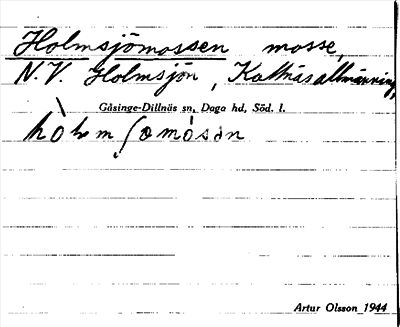 Holmsjömossen mosse,
N.V. Holmsjön, Kattnäs allmänning,
Gåsinge-Dillnäs sn, Daga hd, Söd. l.
hòlmʃømósən
Artur Olsson 1944